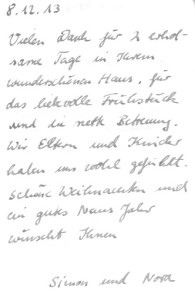 8.12.13
Vielen Dank für 2 erhol-
same Tage in Ihrem
wunderschönen Haus, für
das liebevolle Frühstück
und die nette Betreuung.
Wir Eltern und Kinder
haben uns wohl gefühlt.
Schöne Weihnachten und
ein gutes Neues Jahr
wünscht Ihnen
Simon und Nora